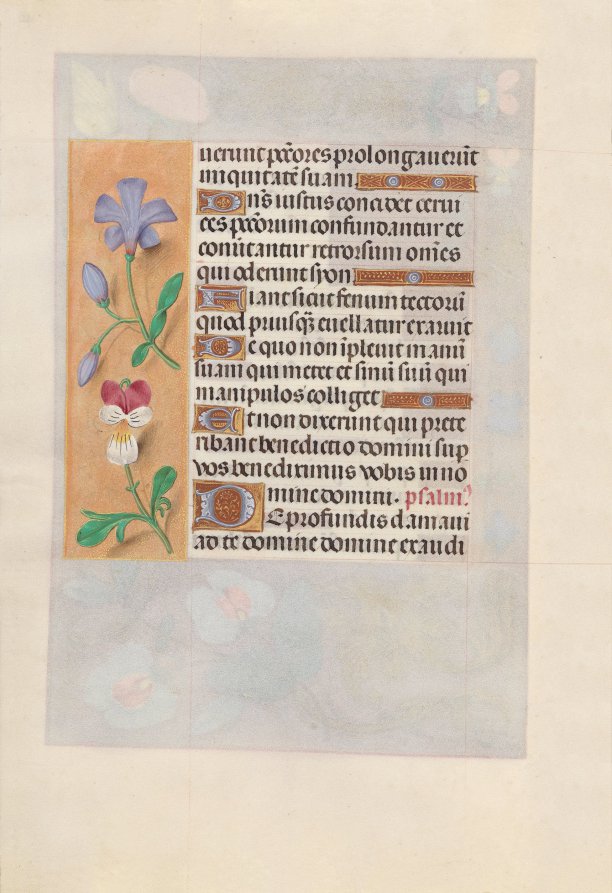 uerunt pctores prolongauerūt
iniquitatē suam
Dn̄s iustus concidet cerui
ces pctorum confundantur et
conūtantur retrorsum omēs
qui oderunt syon
Fiant sicut fenum tectorū
quod priusq̄ euellatur exaruit
De quo non īpleuit manū
suam qui metet et sinū suū qui
manipulos colliget
Et non dixerunt qui prete
ribant benedictio domini sup
vos benediximus vobis in no
mine domini. psalm9
De profundis clamaui
ad te domine domine exaudi